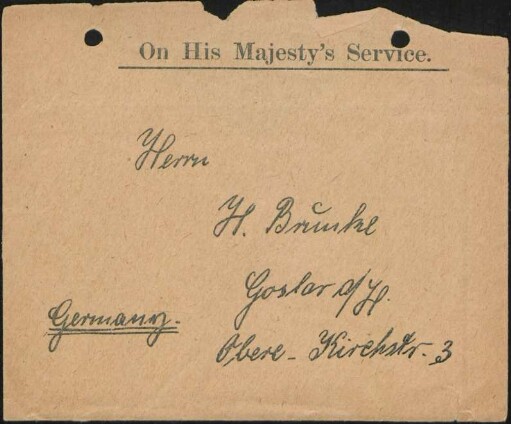 On His Majesty's Service.
Herrn
H. Brunke
Goslar a/H.
Germany.
Obere - Kirchstr. 3